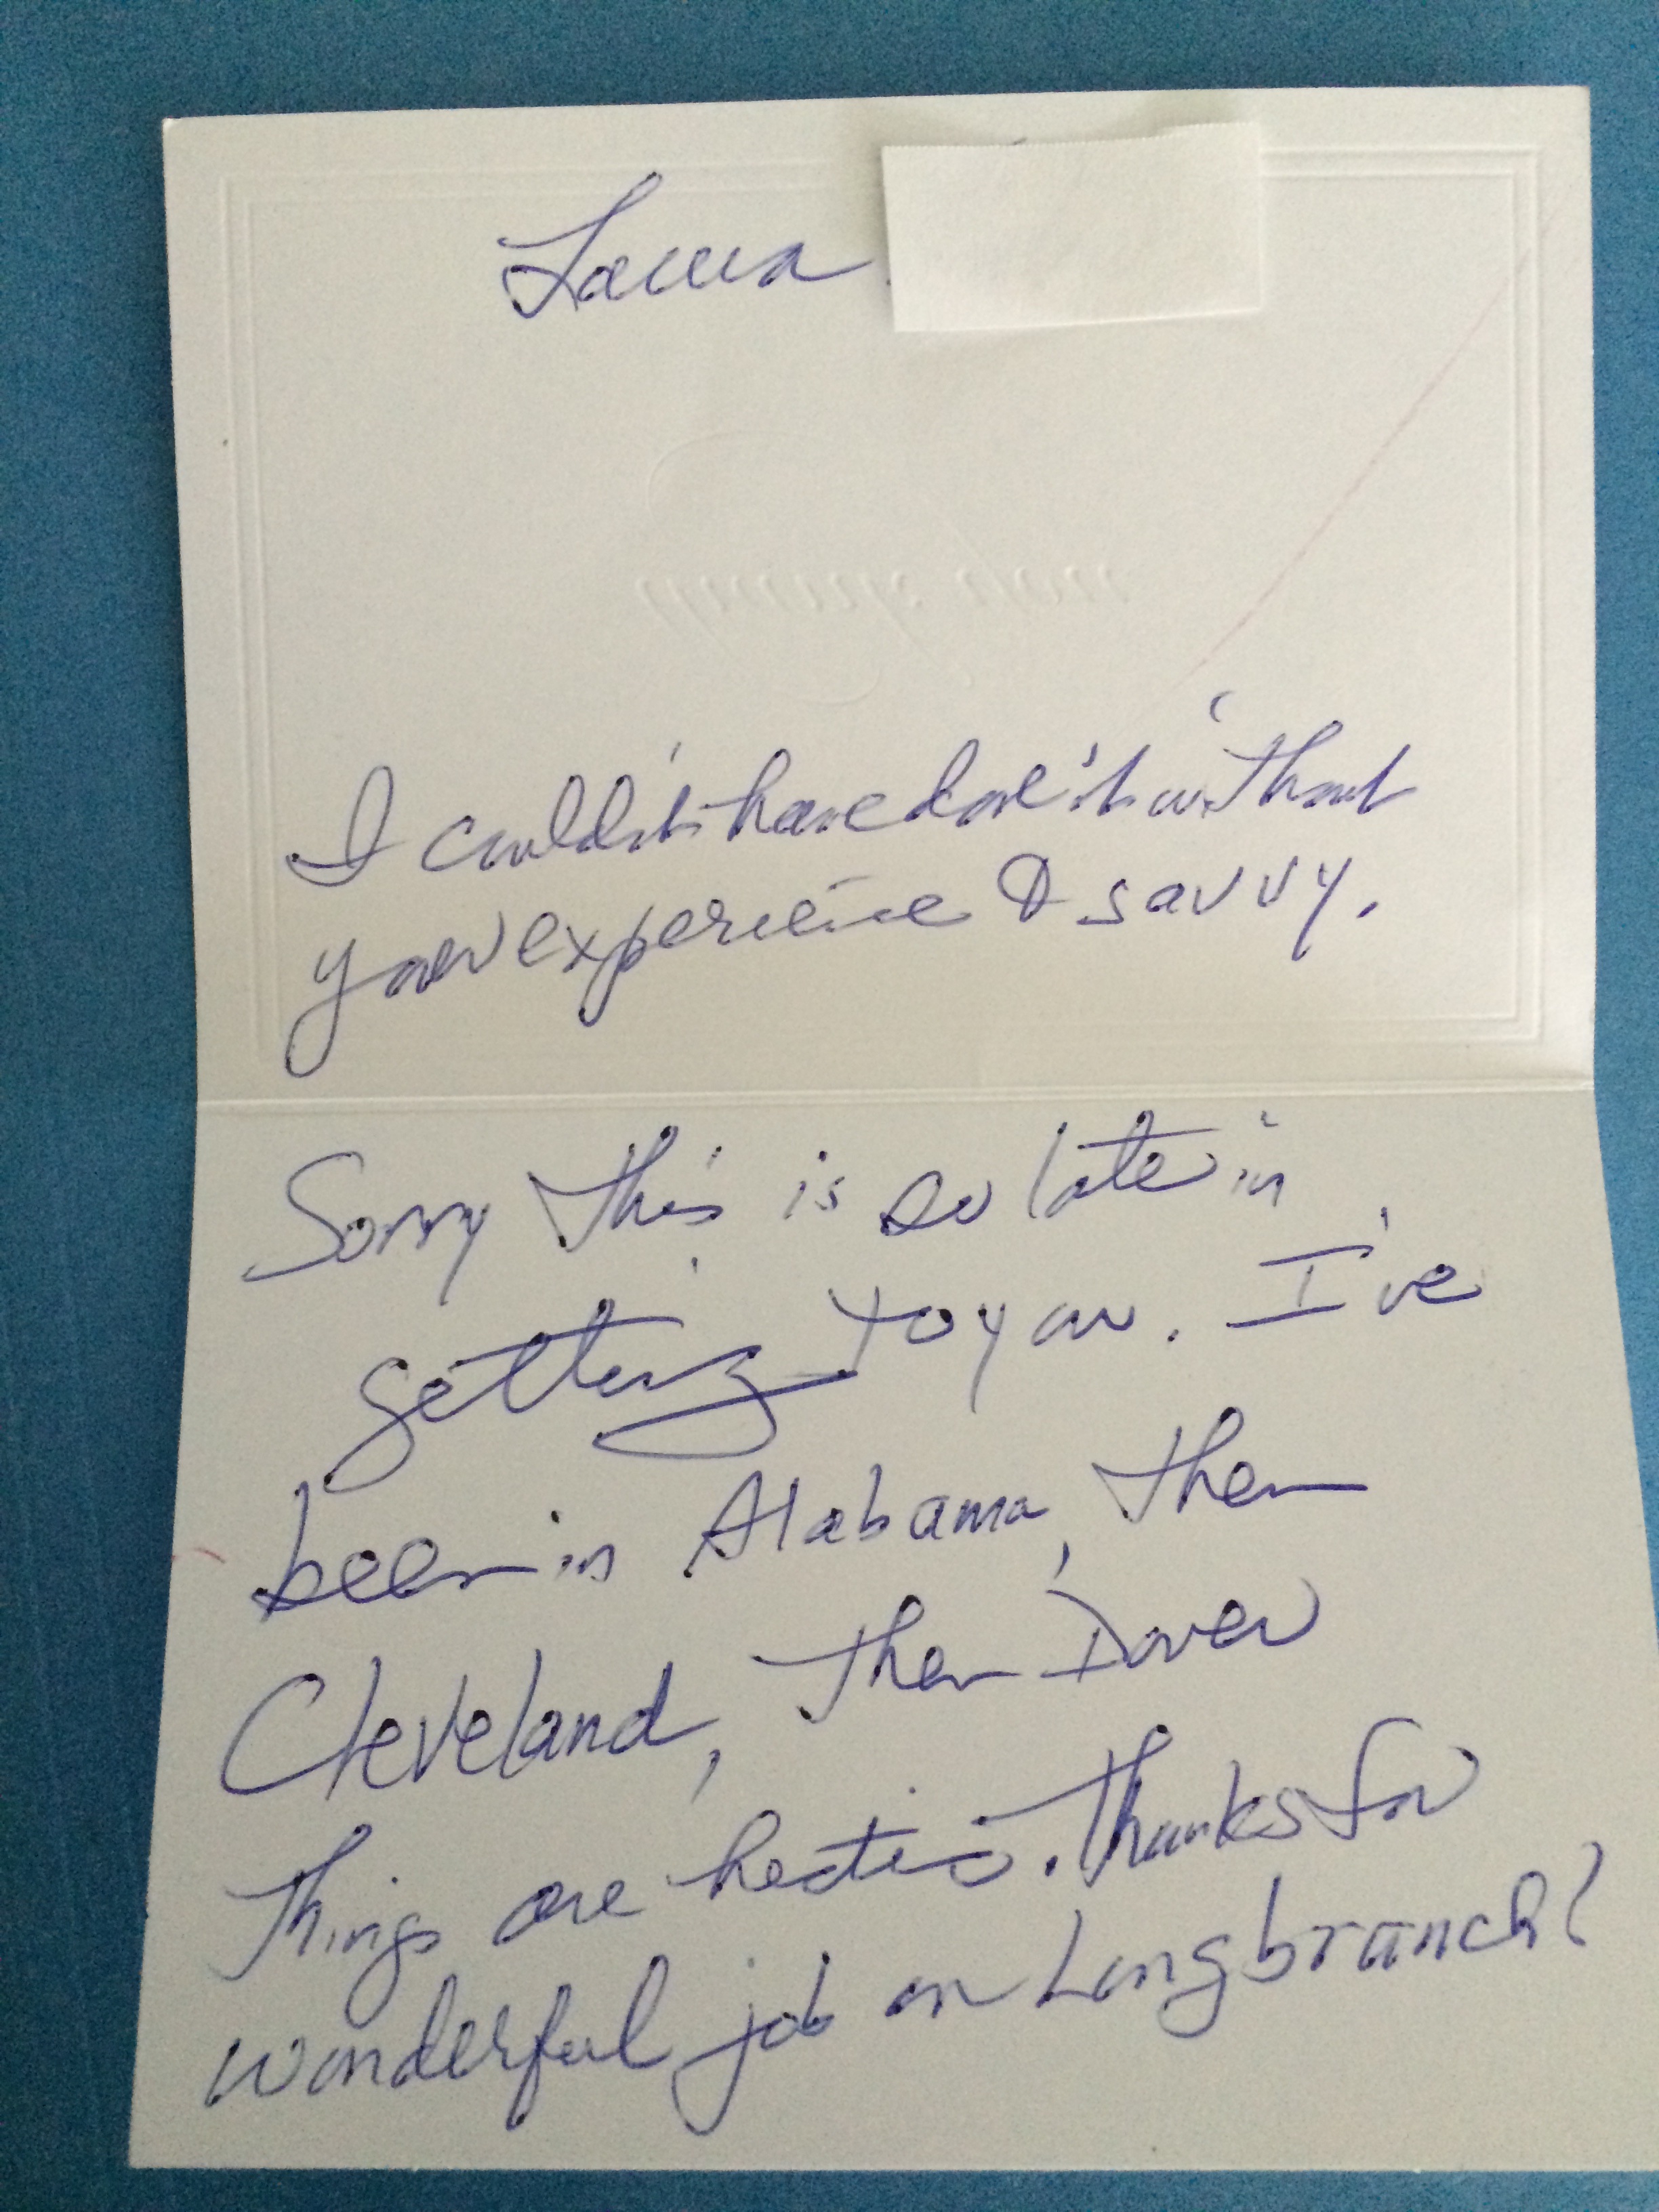 Laura
I couldn't have done it without
your experience & savvy.
Sorry this is so late in
getting to you. I've
been in Alabama, then
Cleveland, then Dover
Things are hectic. Thanks for
wonderful job on Longbranch!